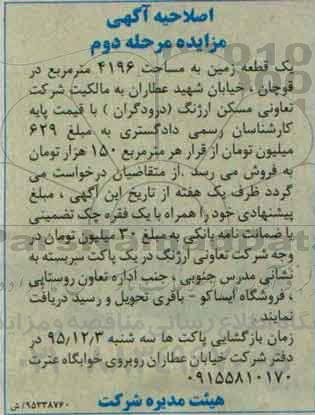 اصلاحیه آگهی
مزایده مرحله دوم
یک قطعه زمین به مساحت ۴۱۹۶ مترمربع در
قوچان ، خیابان شهید عطاران به مالکیت شرکت
تعاونی مسکن ارژنگ (درودگران ) با قیمت پایه
کارشناسان رسمی دادگستری به مبلغ ۶۲۹
میلیون تومان از قرار هر مترمربع ۱۵۰ هزار تومان
به فروش می رسد .از متقاضیان درخواست می
گردد ظرف یک هفته از تاریخ این آگهی ، مبلغ
پیشنهادی خود را همراه با یک فقره چک تضمینی
یا ضمانت نامه بانکی به مبلغ ۳۰ میلیون تومان در
وجه شرکت تعاونی ارژنگ در یک پاکت سربسته به
نشانی مدرس جنوبی ، جنب اداره تعاون روستایی
، فروشگاه ایساکو - باقری تحویل و رسید دریافت
نمایند .
زمان بازگشایی پاکت ها سه شنبه ۹۵،۱۲،۳ در
دفتر شرکت خیابان عطاران روبروی خوابگاه عترت
۰۹۱۵۵۸۱۰۱۷۰
هیئت مدیره شرکت
۹۵۳۳۸۷۶۰/ ش